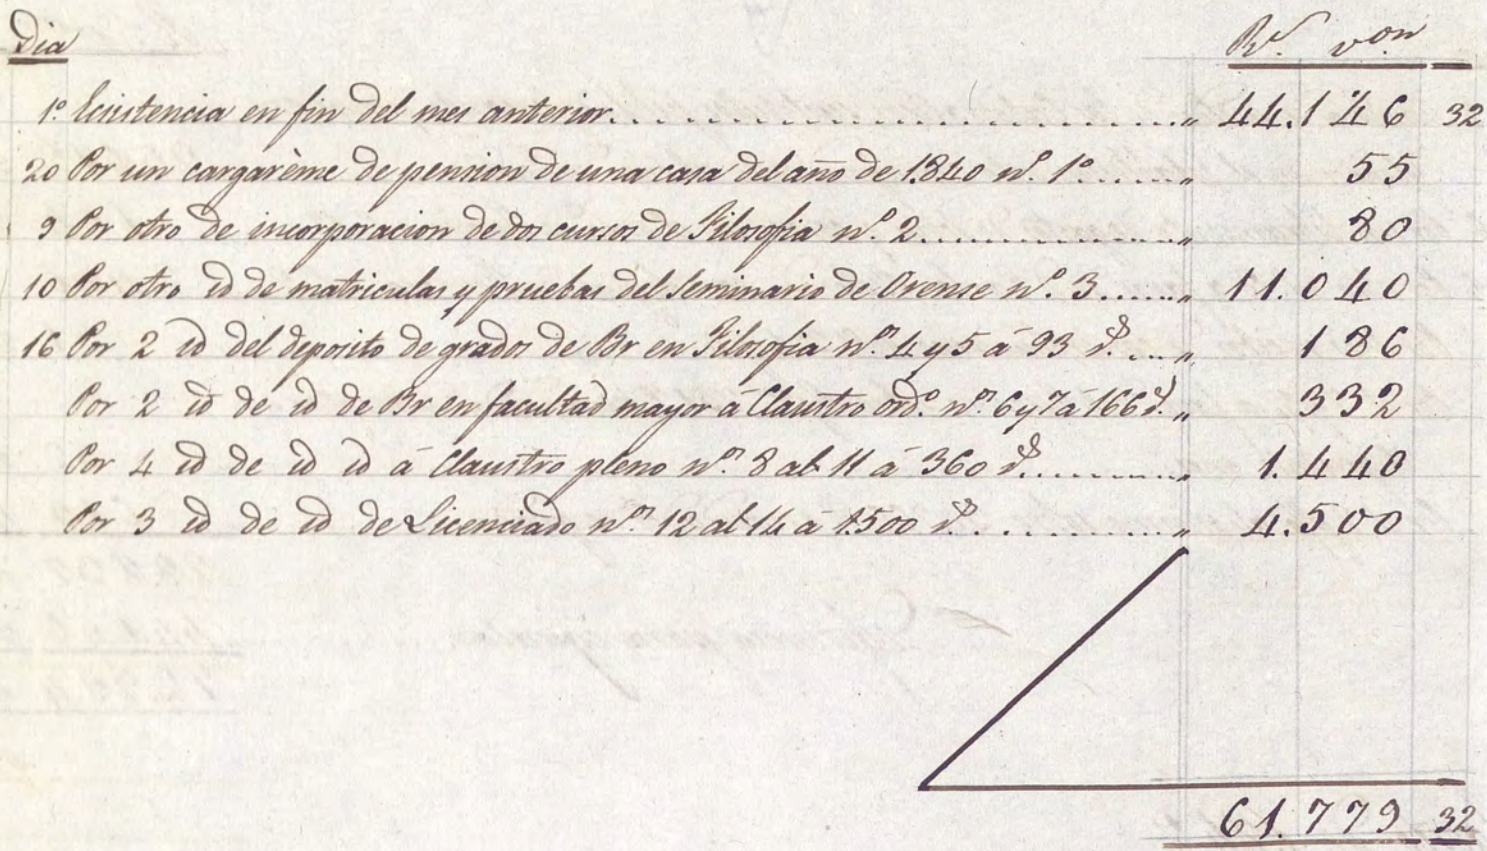 Dia Rs. von
1º Ecsistencia en fin del mes anterior........ " 44.146 32
20 Por un cargarème de pension de una casa del año de 1840 nº. 1º...... " 55
9 Por otro de incorporacion de dos cursos de Filosofia nº. 2............ " 80
10 Por otro id de matriculas y pruebas del Seminario de Orense nº. 3...... " 11.040
16 Por 2 id del deposito de grados de Br en Filosofia nos. 4 y 5 á 93 rs. ... " 186
Por 2 id de id de Br en facultad mayor á Claustro ordº. nos. 6 y 7 á 166 rs. " 332
Por 4 id de id id á Claustro pleno nos. 8 al 11 á 360 rs........ " 1.440
Por 3 id de id de Licenciado nos. 12 al 14 á 1.500 rs. ........ " 4.500
61.779 32